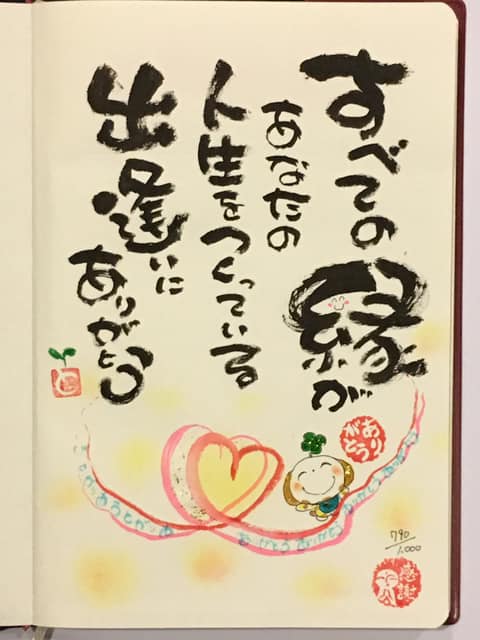 すべての縁が
あなたの
人生をつくっている
出逢いに
ありがとう
ありがとう
ありがとう ありがとう ありがとう
790/1,000
感謝